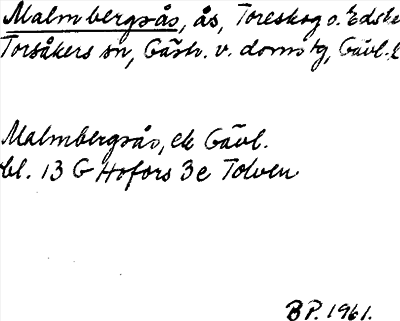 Malmbergsås, ås, Toreskog o. Edske
Torsåkers sn, Gästr. v. doms tg, Gävl. l
Malmbergsås, ek Gävl.
bl. 13 G Hofors 3e Tolven
BP. 1961.